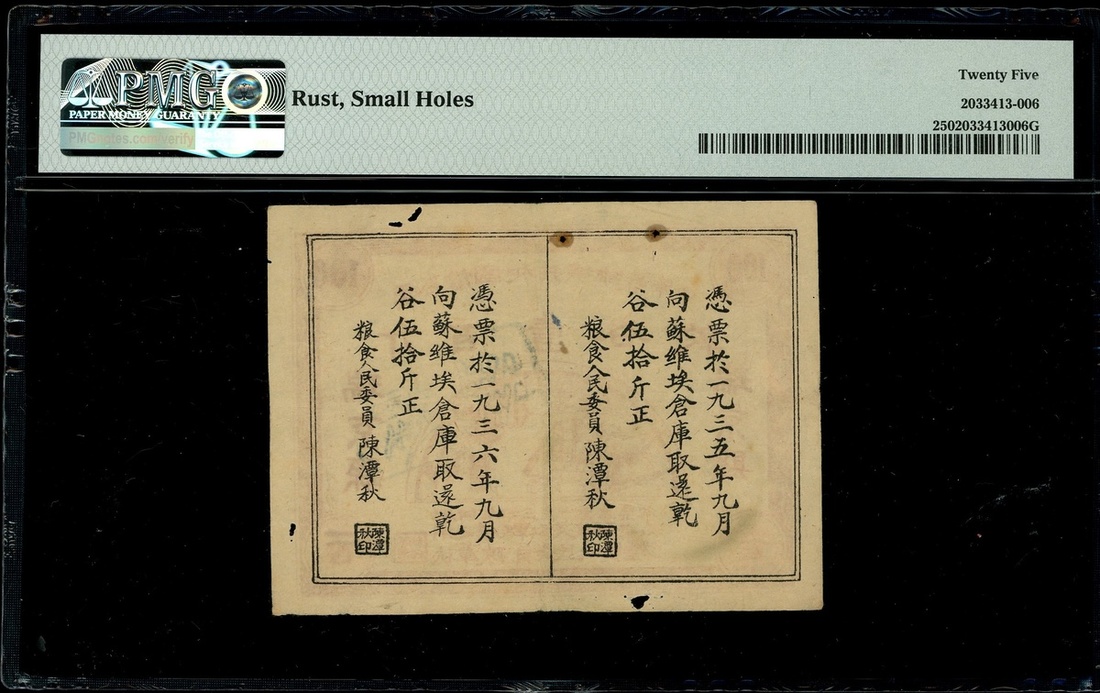 PMG
PAPER MONEY GUARANTY
PMGnotes.com/verify
Rust, Small Holes
Twenty Five
2033413-006
2502033413006G
憑票於一九三五年九月
向蘇维埃倉庫取還乾
谷伍拾斤正
粮食人民委員陳潭秋
陳潭秋印
憑票於一九三六年九月
向蘇维埃倉庫取還乾
谷伍拾斤正
粮食人民委員陳潭秋
陳潭秋印